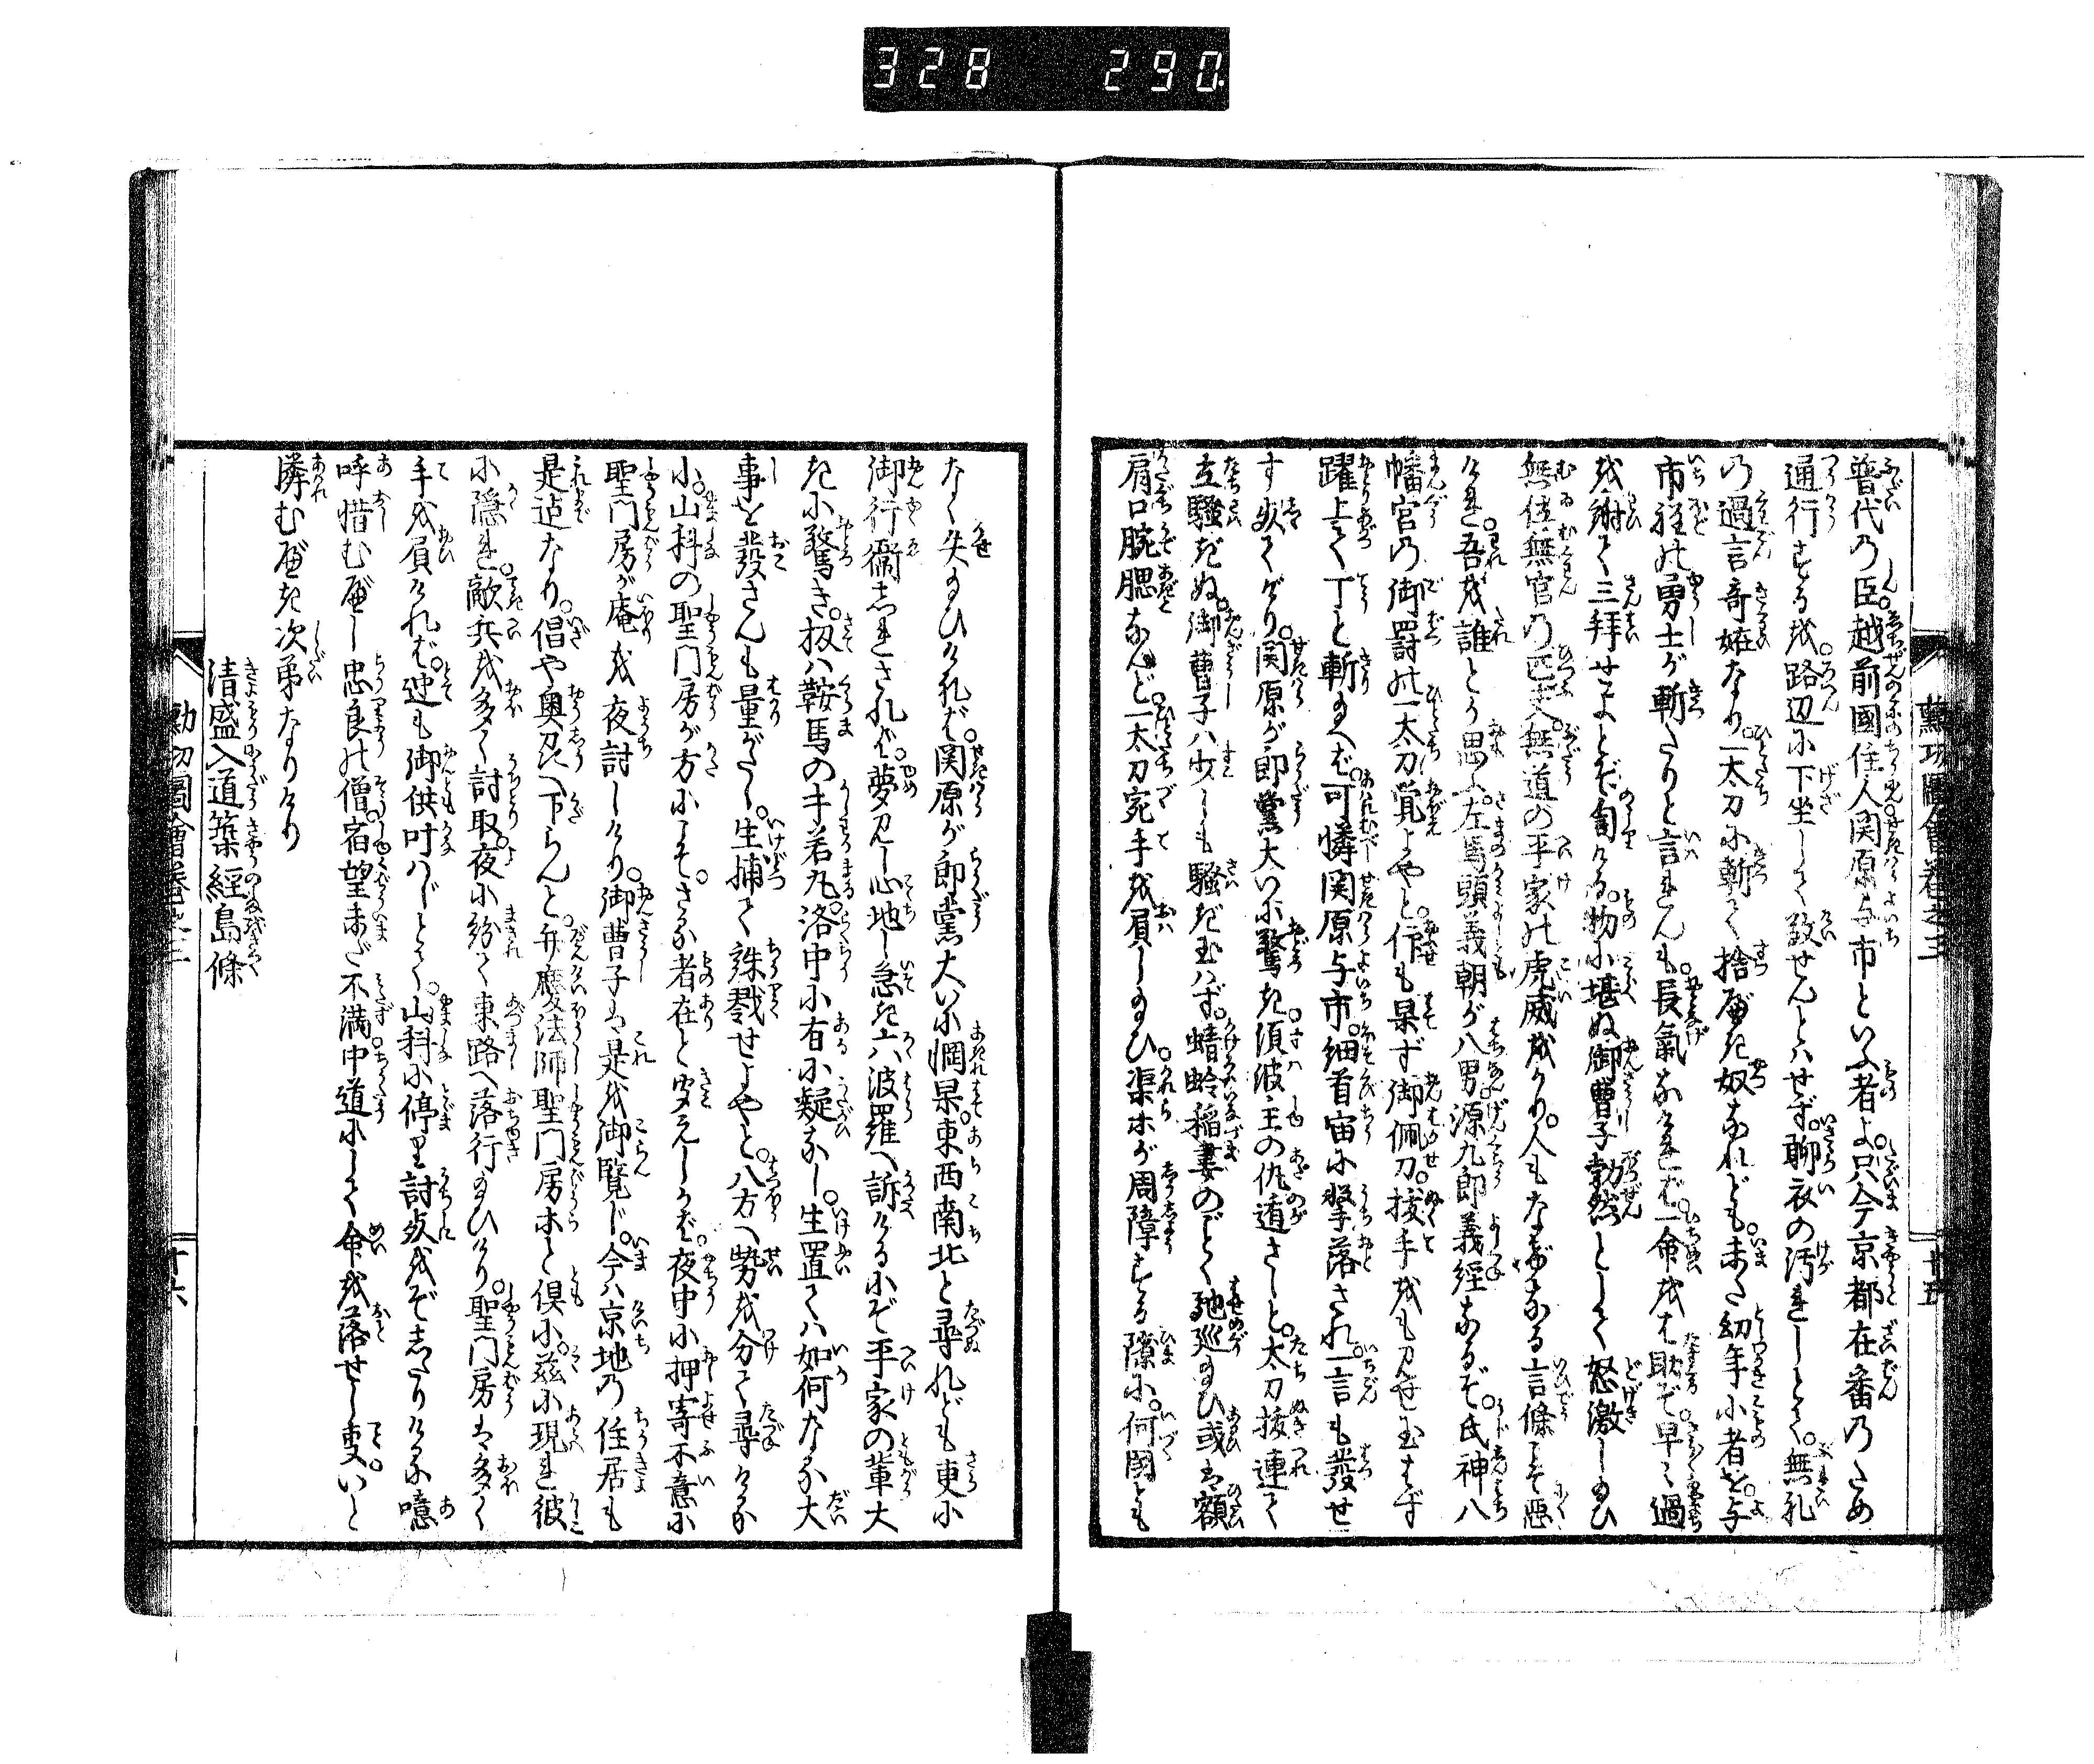 328 290
勲功圖會巻之三
十五
普代の臣。越前國住人関原与市といふ者よ。只今京都在番のため
通行する我。路辺に下坐して敬せんとはせず。聊衣の汚れしとて。無礼
の過言奇姙なり。一太刀に斬て捨べき奴なれども。未た幼年小者を。与
市程の勇士が斬たりと言れんも。長氣なければ。一命をは助る。早々過
を謝て三拝せよとぞ匐ける。物に堪ぬ御曹子勃然として怒激し給ひ
無位無官の匹夫。無道の平家の虎威をかり。人もなげなる言條こそ悪
けれ。吾を誰とか思ふ。左馬頭義朝が八男。源九郎義經なるぞ。氏神八
幡宮の御罸の一太刀覚よやと。仰も果ず御佩刀。抜手をも見せ玉はず
躍上て丁と斬給へば。可憐関原与市。細首宙に撃落され。一言も發せ
す死てげり。関原が郎黨大いに驚き。須波主の仇遁さしと。太刀抜連て
立騒ぎぬ。御曹子ハ少しも騒ぎ玉はず。蜻蛉稲妻のごとく馳廻給ひ或は額
肩口腕腮なんど。一太刀宛手を負し給ひ。渠木が周障する隙に。何國とも
なく失給ひければ。関原が郎黨大いに惘果。東西南北と尋れども更に
御行衞しれされば。夢見し心地し急ぎ六波羅へ訴けるにぞ平家の輩大
きに驚き。扨ハ鞍馬の牛若丸。洛中に有に疑なし。生置てハ如何なる大
事を發さんも量がたし。生捕て誅戮せよやと。八方へ勢を分て尋けるが
小。山科の聖門房が方にこそ。さる者在と聞えしかば。夜中に押寄不意に
聖門房が庵を夜討しけり。御曹子は是を御覧じ。今ハ京地の住居も
是迠なり。倡や奥刕へ下らんと。弁慶法師聖門房木と倶に。茲に現れ彼
に隠れ。敵兵を多く討取。夜に紛て東路へ落行給ひけり。聖門房は多く
手を負ければ。迚も御供叶ハじとて。山科に停り討死をぞしたりける。噫
呼惜むべし忠良の僧。宿望未だ不満。中道にして命を落せし事。いと
隣むべき次第なりけり
清盛入道築經島條
勲功圖會巻之三
十六